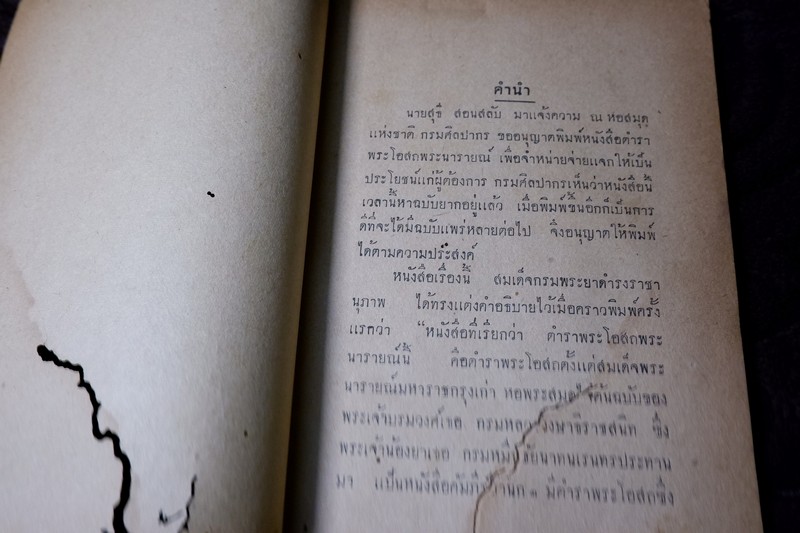 คำนำ
นายสุธี สอนสลับ มาแจ้งความ ณ หอสมุด
แห่งชาติ กรมศิลปากร ขออนุญาตพิมพ์หนังสือตำรา
พระโอสถพระนารายณ์ เพื่อจำหน่ายจ่ายแจกให้เป็น
ประโยชน์แก่ผู้ต้องการ กรมศิลปากรเห็นว่าหนังสือนี้
เวลานี้หาฉบับยากอยู่แล้ว เมื่อพิมพ์ขึ้นอีกก็เป็นการ
ดีที่จะได้มีฉบับแพร่หลายต่อไป จึงอนุญาตให้พิมพ์
ได้ตามความประสงค์
หนังสือเรื่องนี้ สมเด็จกรมพระยาดำรงราชา
นุภาพ ได้ทรงแต่งคำอธิบายไว้เมื่อคราวพิมพ์ครั้ง
แรกว่า "หนังสือที่เรียกว่า ตำราพระโอสถพระ
นารายณ์นี้ คือตำราพระโอสถตั้งแต่สมเด็จพระ
นารายณ์มหาราชกรุงเก่า หอพระสมุดได้ต้นฉบับของ
พระเจ้าบรมวงศ์เธอ กรมหลวงวงษาธิราชสนิท ซึ่ง
พระเจ้าน้องยาเธอ กรมหมื่นชัยนาทนเรนทรประทาน
มา เป็นหนังสือคัมภีร์ใบลาน ๑ มีตำราพระโอสถซึ่ง